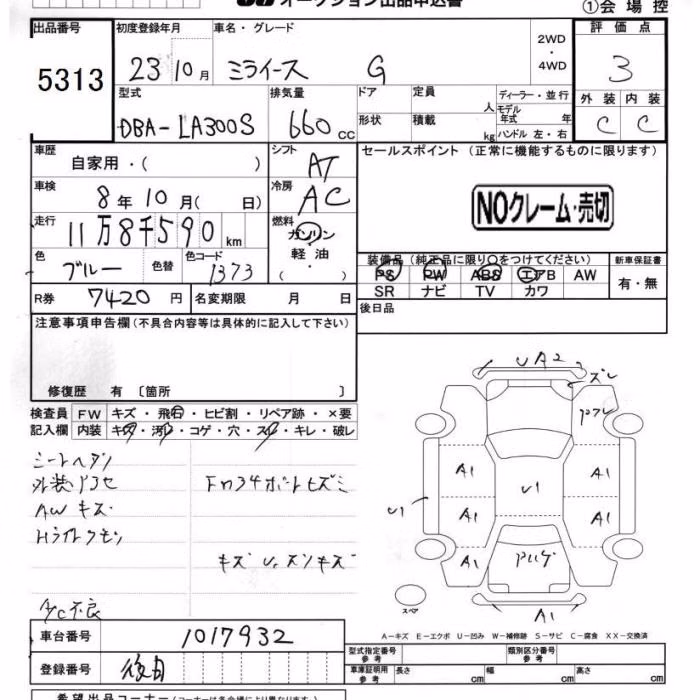 オークション出品申込書
①会場控
出品番号 初度登録年月 車名・グレード 2WD・4WD 評価点
5313 23 10月 ミライース G 3
型式 排気量 ドア 定員 人 ディーラー・並行 外装 内装
DBA-LA300S 660cc 形状 積載 kg モデル年式 年 ハンドル 左・右 C C
車歴 自家用・( ) シフト AT セールスポイント (正常に機能するものに限ります)
車検 8年10月( 日) 冷房 AC
NOクレーム・売切
走行 11万8千590km 燃料 ガソリン・軽油・
色 ブルー 色替 色コード 1373
装備品 (純正品に限り○をつけてください) 新車保証書
PS PW ABS エアB AW 有・無
SR ナビ TV カワ
R券 7420円 名変期限 月 日 後日品
注意事項申告欄 (不具合内容等は具体的に記入して下さい)
修復歴 有 〔箇所 〕
検査員 FW キズ・飛石・ヒビ割・リペア跡・×要
記入欄 内装 キズ・汚れ・コゲ・穴・スレ・キレ・破レ
シートヘタリ
AWキズ
Hライトクモリ
A/C不良
UA2
ズレ
A1 A1
U1
U1
A1 A1
A1
スペア
A1
A-キズ E-エクボ U-凹み W-補修跡 S-サビ C-腐食 XX-交換済
車台番号 1017932
登録番号 後日
型式指定番号 参考 類別区分番号 参考
車庫証明用 参考 長さ cm 幅 cm 高さ cm
希望出品コーナー